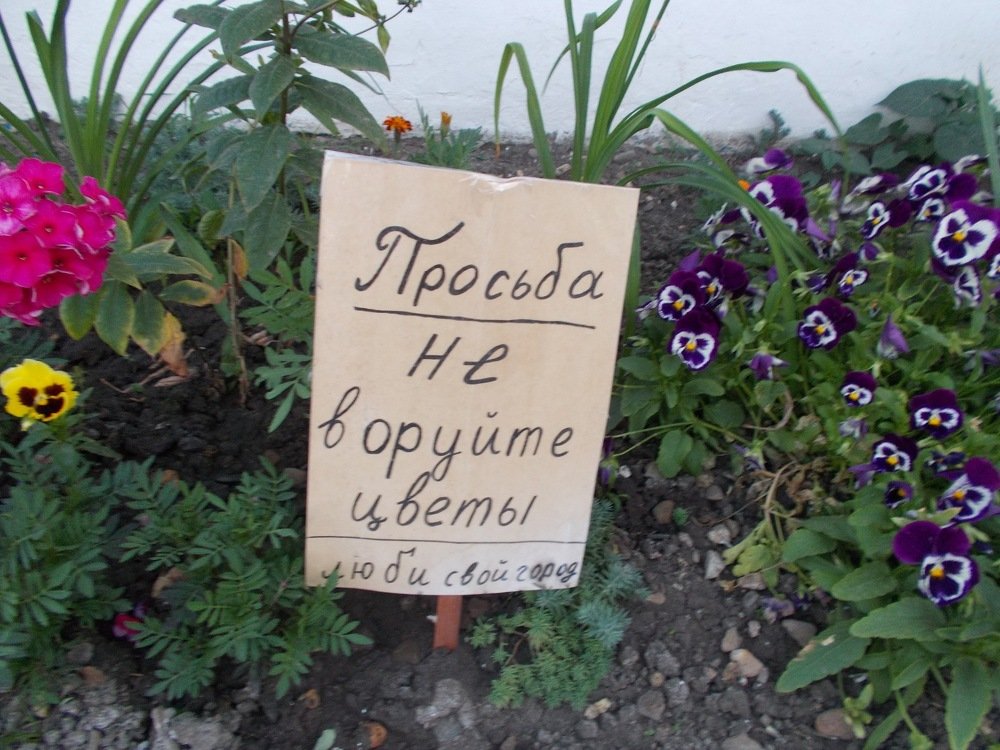 Просьба
не
воруйте
цветы
люби свой город